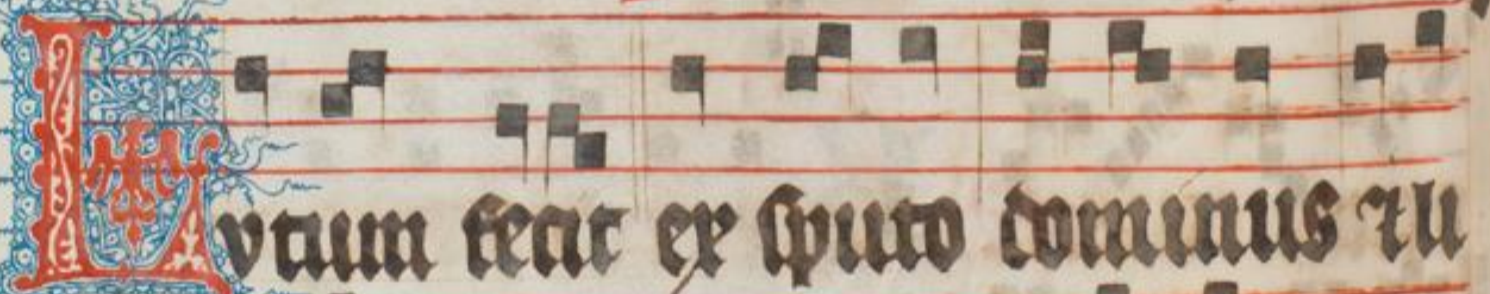 Lvtum fecit ex sputo dominus ⁊ li